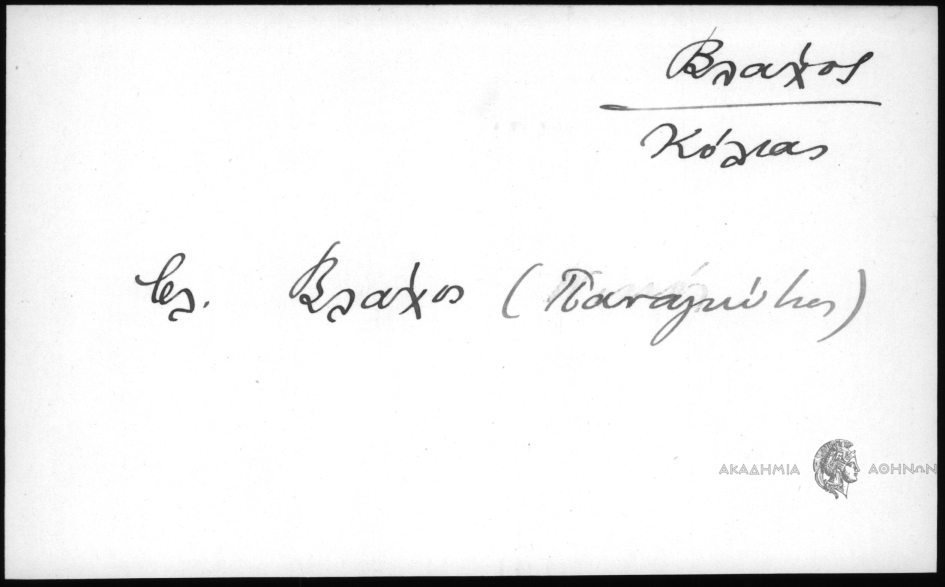 Βλάχος
Κόλιας
βλ. Βλάχος (Παναγιώτης)
ΑΚΑΔΗΜΙΑ ΑΘΗΝΩΝ